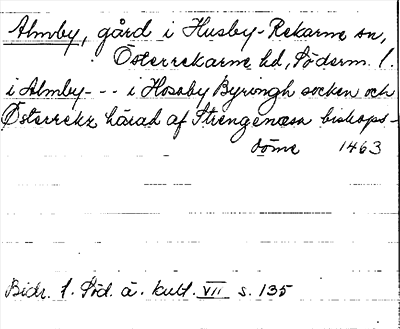 Almby, gård i Husby-Rekarne sn,
Österrekarne hd, Söderm. l.
i Almby--- i Hosaby Byringh socken och
Österrekz härad af Strengenæsa biskops-
döme 1463
Bidr. t. Söd. ä. kult. VII s. 135